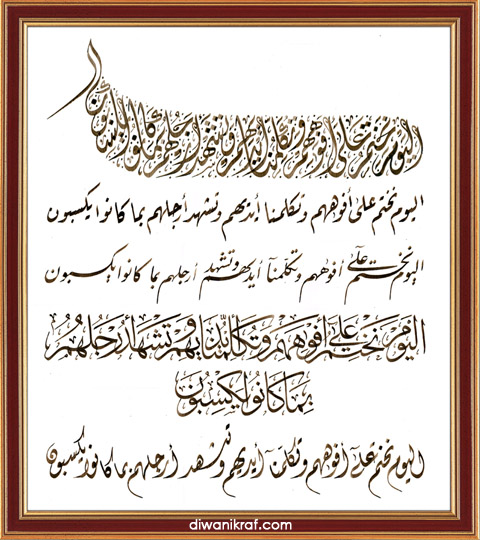 اليوم نختم على أفوههم وتكلمنا أيديهم وتشهد أرجلهم بما كانوا يكسبون
اليوم نختم على أفوههم وتكلمنا أيديهم وتشهد أرجلهم بما كانوا يكسبون
اليوم نختم على أفوههم وتكلمنا أيديهم وتشهد أرجلهم بما كانوا يكسبون
اليوم نختم على أفوههم وتكلمنا أيديهم وتشهد أرجلهم
بما كانوا يكسبون
اليوم نختم على أفوههم وتكلمنا أيديهم وتشهد أرجلهم بما كانوا يكسبون
diwanikraf.com